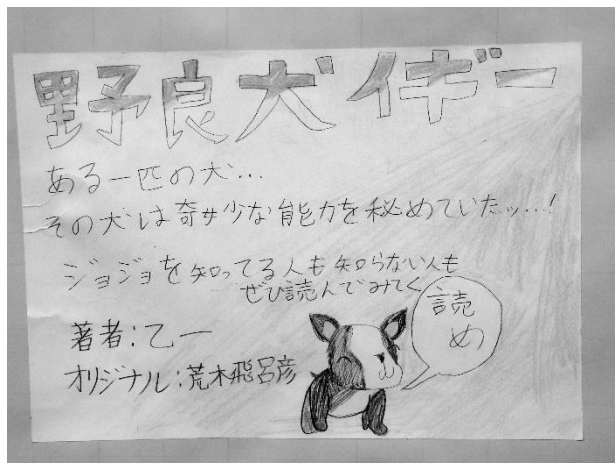 野良犬イギー
ある一匹の犬…
その犬は奇妙な能力を秘めていたッ…!
ジョジョを知ってる人も知らない人も
ぜひ読んでみてく
読
め
著者:乙一
オリジナル:荒木飛呂彦